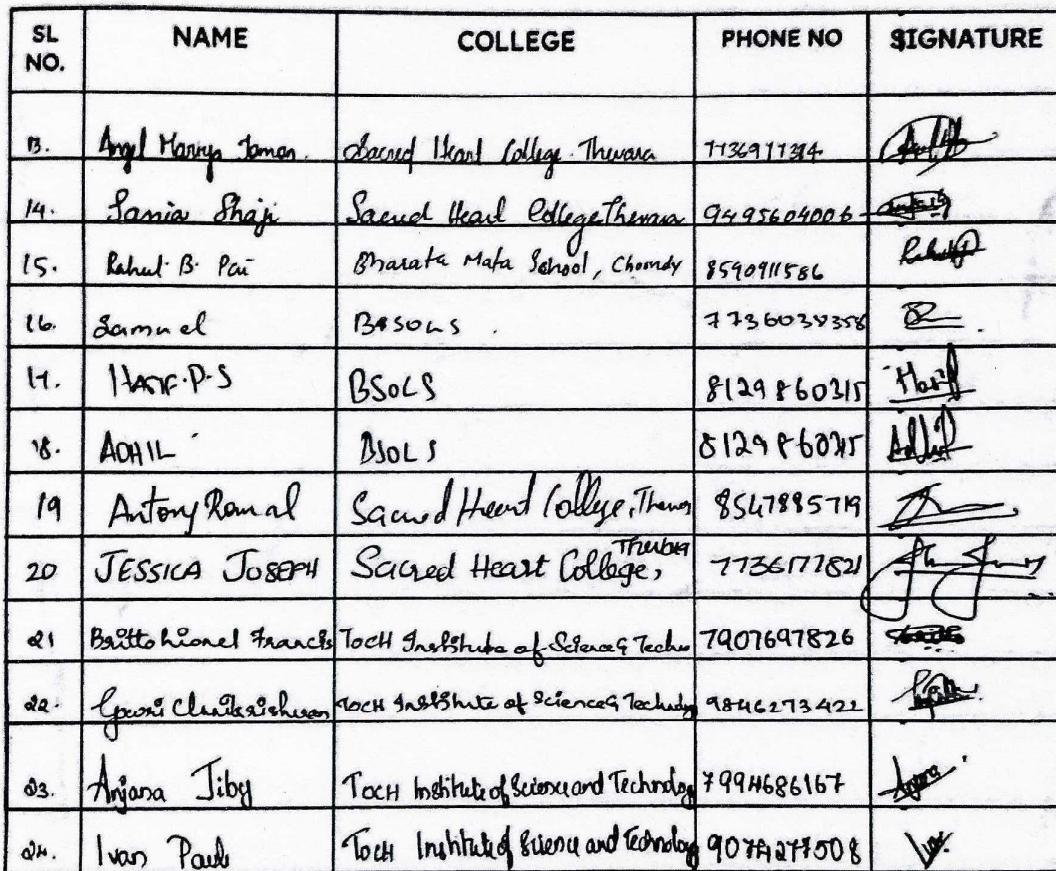 SL NO. NAME COLLEGE PHONE NO SIGNATURE
13. Angel Mariya Jaman. Sacred Heart College Thevara 7736977314
14. Sania Shaji Sacred Heart College Thevara 9495604006
15. Rahul B. Pai Bharata Mata School, Choondy 8590911586 Rahul
16. Samuel BSOLS. 7736038358
17. HASIF.P.S BSOLS 8129860315 Hasif
18. ADHIL BSOLS 8129860315 Adhil
19 Antony Romal Sacred Heart College, Thevara 8547885719
20 JESSICA JOSEPH Sacred Heart College, Thevara 7736177821
21 Britto Lionel Francis TOCH Institute of Science & Techno 7907697826
22. Gowri Unnikrishnan TOCH Institute of Science & Technology 9846273422
23. Anjana Jiby TOCH Institute of Science and Technology 7994686167 Anjana
24. Ivan Paul TOCH Institute of Science and Technology 9074277508